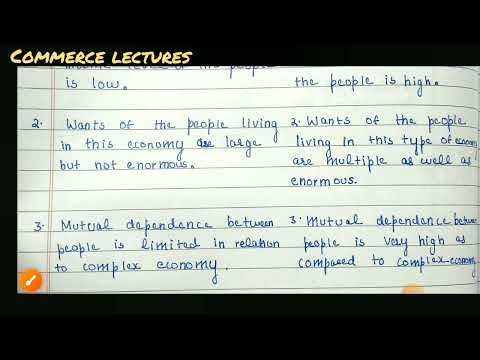 COMMERCE LECTURES
of the people
is low.
2. Wants of the people living
in this economy are large
but not enormous.
3. Mutual dependance between
people is limited in relation
to complex economy.
the people is high.
2. Wants of the people
living in this type of economy
are multiple as well as
enormous.
3. Mutual dependance between
people is very high as
compared to complex economy